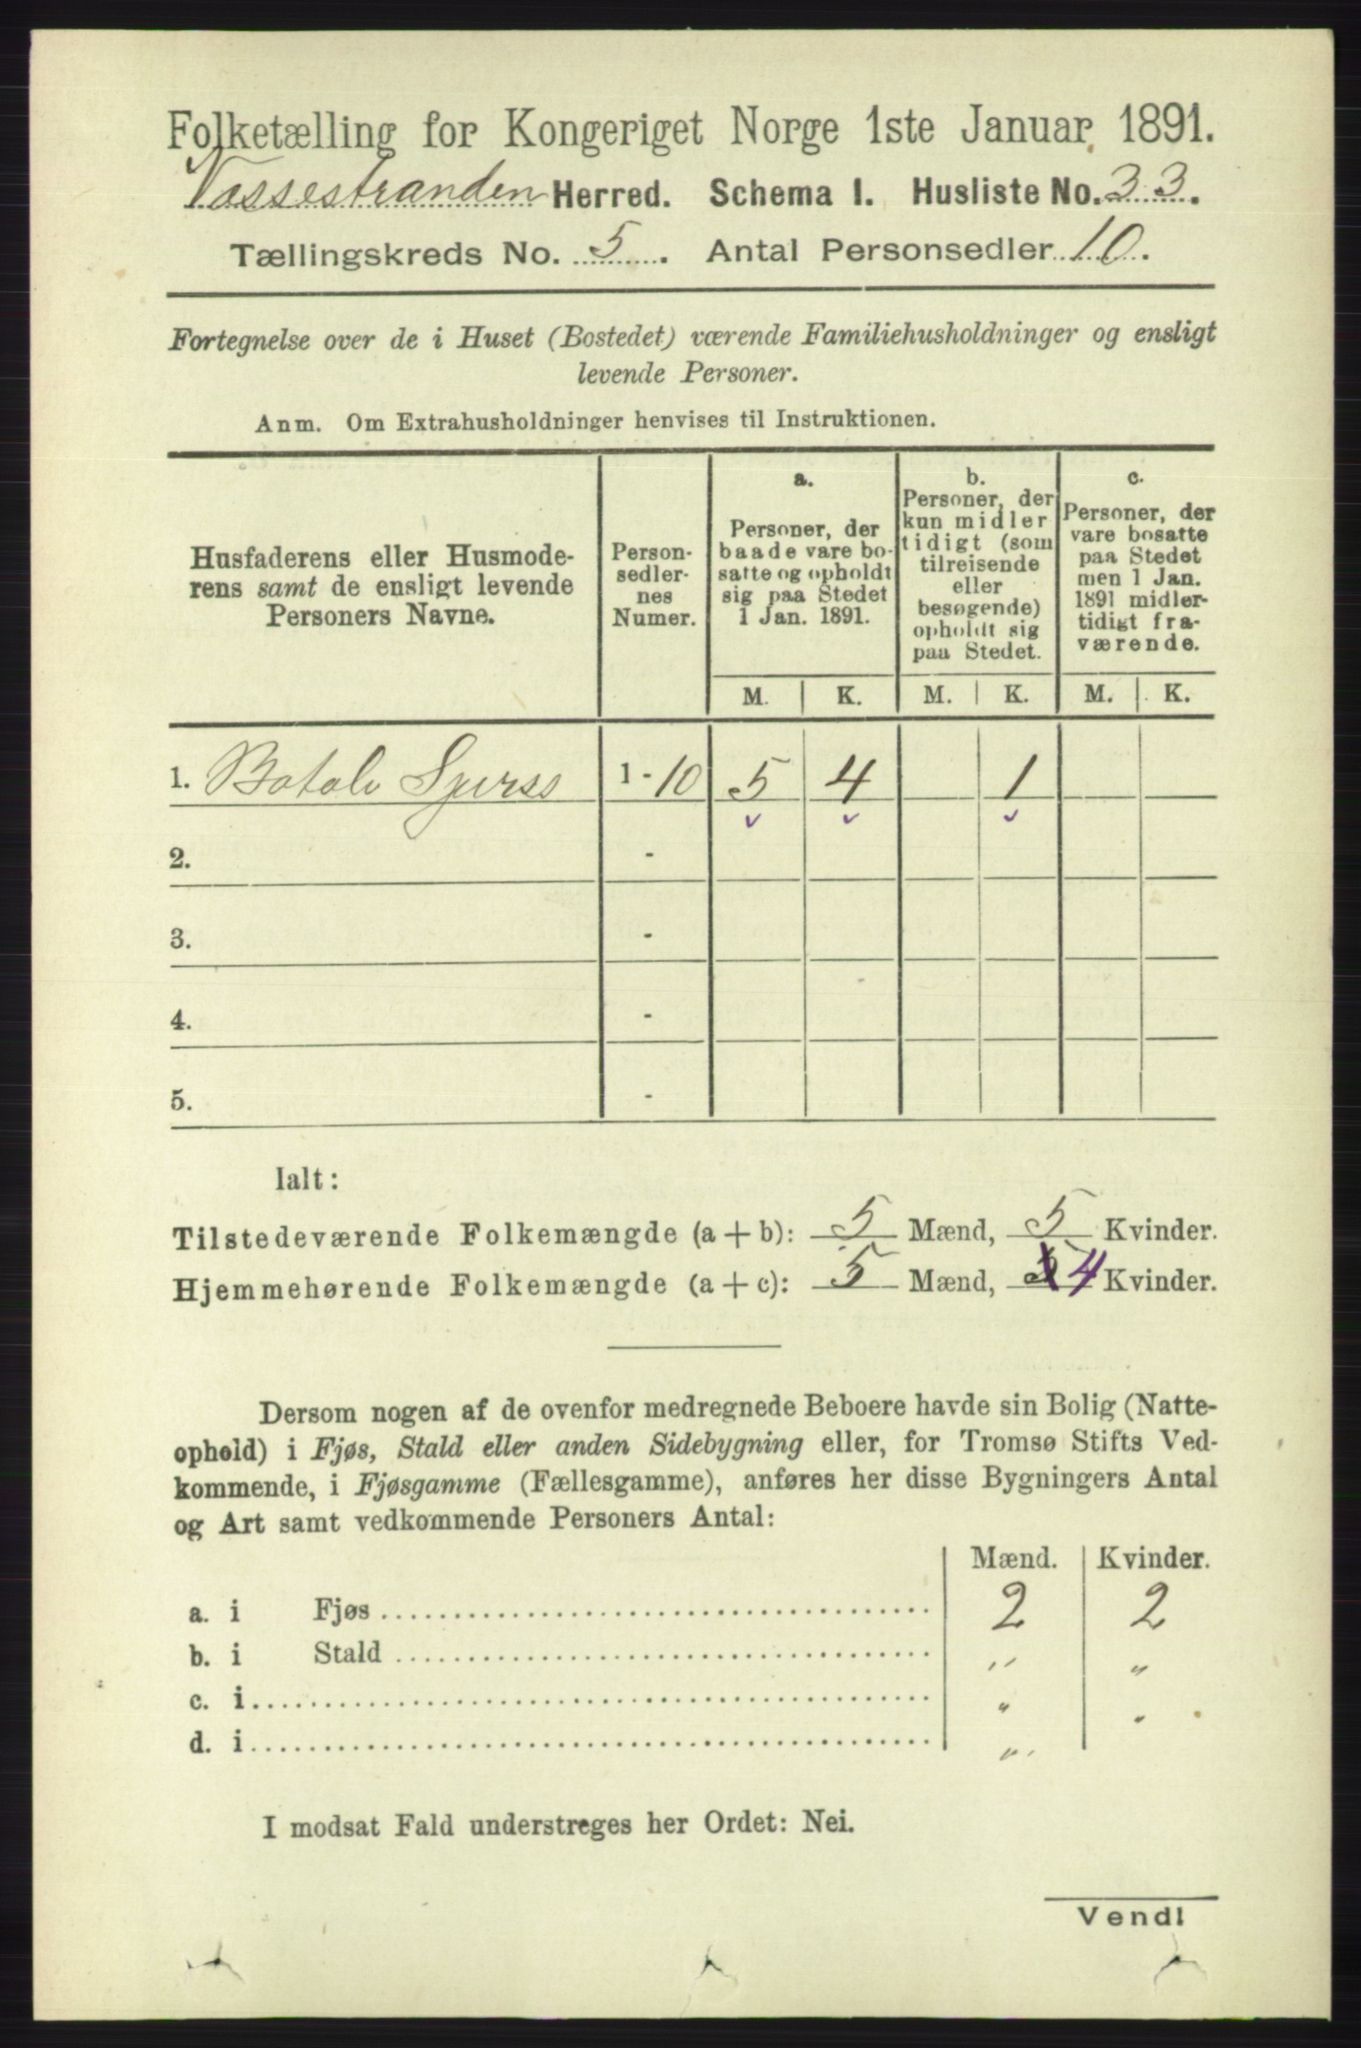 Folketælling for Kongeriget Norge 1ste Januar 1891.
Vossestranden Herred. Schema I. Husliste No. 33.
Tællingskreds No. 5. Antal Personsedler 10.
Fortegnelse over de i Huset (Bostedet) værende Familiehusholdninger og ensligt
levende Personer.
Anm. Om Extrahusholdninger henvises til Instruktionen.
Husfaderens eller Husmode-
rens samt de ensligt levende
Personers Navne.
Person-
sedler-
nes
Numer.
a.
Personer, der
baade vare bo-
satte og opholdt
sig paa Stedet
1 Jan. 1891.
b.
Personer, der
kun midler
tidigt (som
tilreisende
eller
besøgende)
opholdt sig
paa Stedet.
c.
Personer, der
vare bosatte
paa Stedet
men 1 Jan.
1891 midler-
tidigt fra-
værende.
M. K. M. K. M. K.
1. Botolv 1 - 10 5 4 1
2. -
3. -
4. -
5. -
Ialt:
Tilstedeværende Folkemængde (a + b): 5 Mænd, 5 Kvinder.
Hjemmehørende Folkemængde (a + c): 5 Mænd, 4 Kvinder.
Dersom nogen af de ovenfor medregnede Beboere havde sin Bolig (Natte-
ophold) i Fjøs, Stald eller anden Sidebygning eller, for Tromsø Stifts Ved-
kommende, i Fjøsgamme (Fællesgamme), anføres her disse Bygningers Antal
og Art samt vedkommende Personers Antal:
Mænd. Kvinder.
a. i Fjøs 2 2
b. i Stald " "
c. i " "
d. i "
I modsat Fald understreges her Ordet: Nei.
Vend!